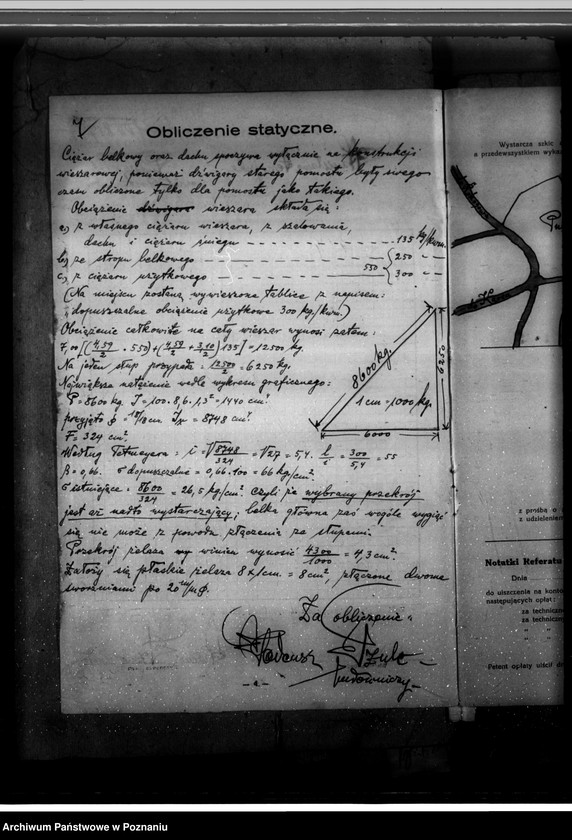 Obliczenie statyczne.
Ciężar belkowy oraz dachu spoczywa wyłącznie na konstrukcji
wieszarowej, ponieważ dźwigary starego pomostu były swego
czasu obliczone tylko dla pomostu jako takiego.
Obciążenie dźwigara wieszara składa się:
a) z własnego ciężaru wieszara, z szalowania,
dachu i ciężaru śniegu 135 kg/kwm.
b) ze stropu belkowego 250
c) z ciężaru użytkowego 550 300
(Na miejscu zostaną wywieszone tablice z napisem:
"dopuszczalne obciążenie użytkowe 300 kg/kwm.)
Obciążenie całkowite na cały wieszar wynosi zatem:
7,00 [(4,59/2 · 550) + (4,59/2 + 3,10/2) 135] = 12500 kg.
Na jeden słup przypada: 12500/2 = 6250 kg.
Największe natężenie wedle wykresu graficznego:
P = 8600 kg. J = 100 · 8,6 · 1,3² = 1440 cm⁴
przyjęto ϕ = 18/18 cm Jx = 8748 cm⁴
F = 324 cm²
Według Tetmayera: i = √8748/324 = √27 = 5,4. l/i = 300/5,4 = 55
β = 0,66. σ dopuszczalne = 0,66 · 100 = 66 kg/cm².
σ istniejące: 8600/324 = 26,5 kg/cm². Czyli że wybrany przekrój
jest aż nadto wystarczający, belka główna zaś wogóle wygiąć
się nie może z powodu złączenia ze słupami.
Przekrój żelaza winien wynosić 4300/1000 = 4,3 cm².
Założy się płaskie żelaza 8 x 1 cm. = 8 cm², złączone dwoma
sworzniami po 20 m/m ϕ.
Za obliczenie:
Tadeusz Szulc
budowniczy
8600 kg.
1 cm = 1000 kg.
6250
6000
Wystarcza szkic
a przedewszystkiem wyka
z prośbą o
z udzielenien
Notatki Referatu
Dnia
do uiszczenia na konto
następujących opłat:
za techniczne
za techniczne
" "
" "
Patent opłaty uiścił d
Archiwum Państwowe w Poznaniu